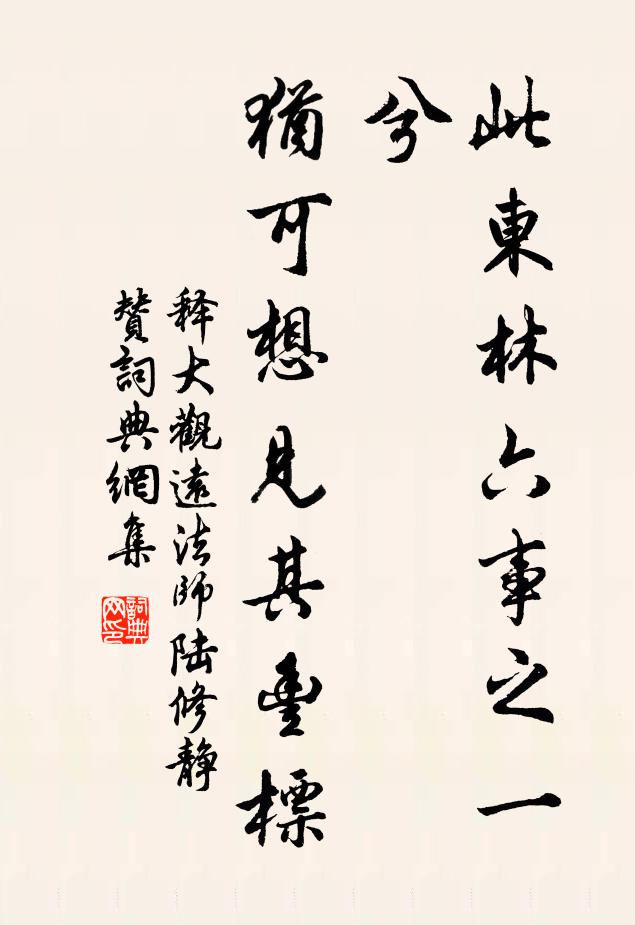 此東林六事之一
兮
猶可想見其豐標
释大觀遠法師陆修静
贊詞典網集
詞典网印